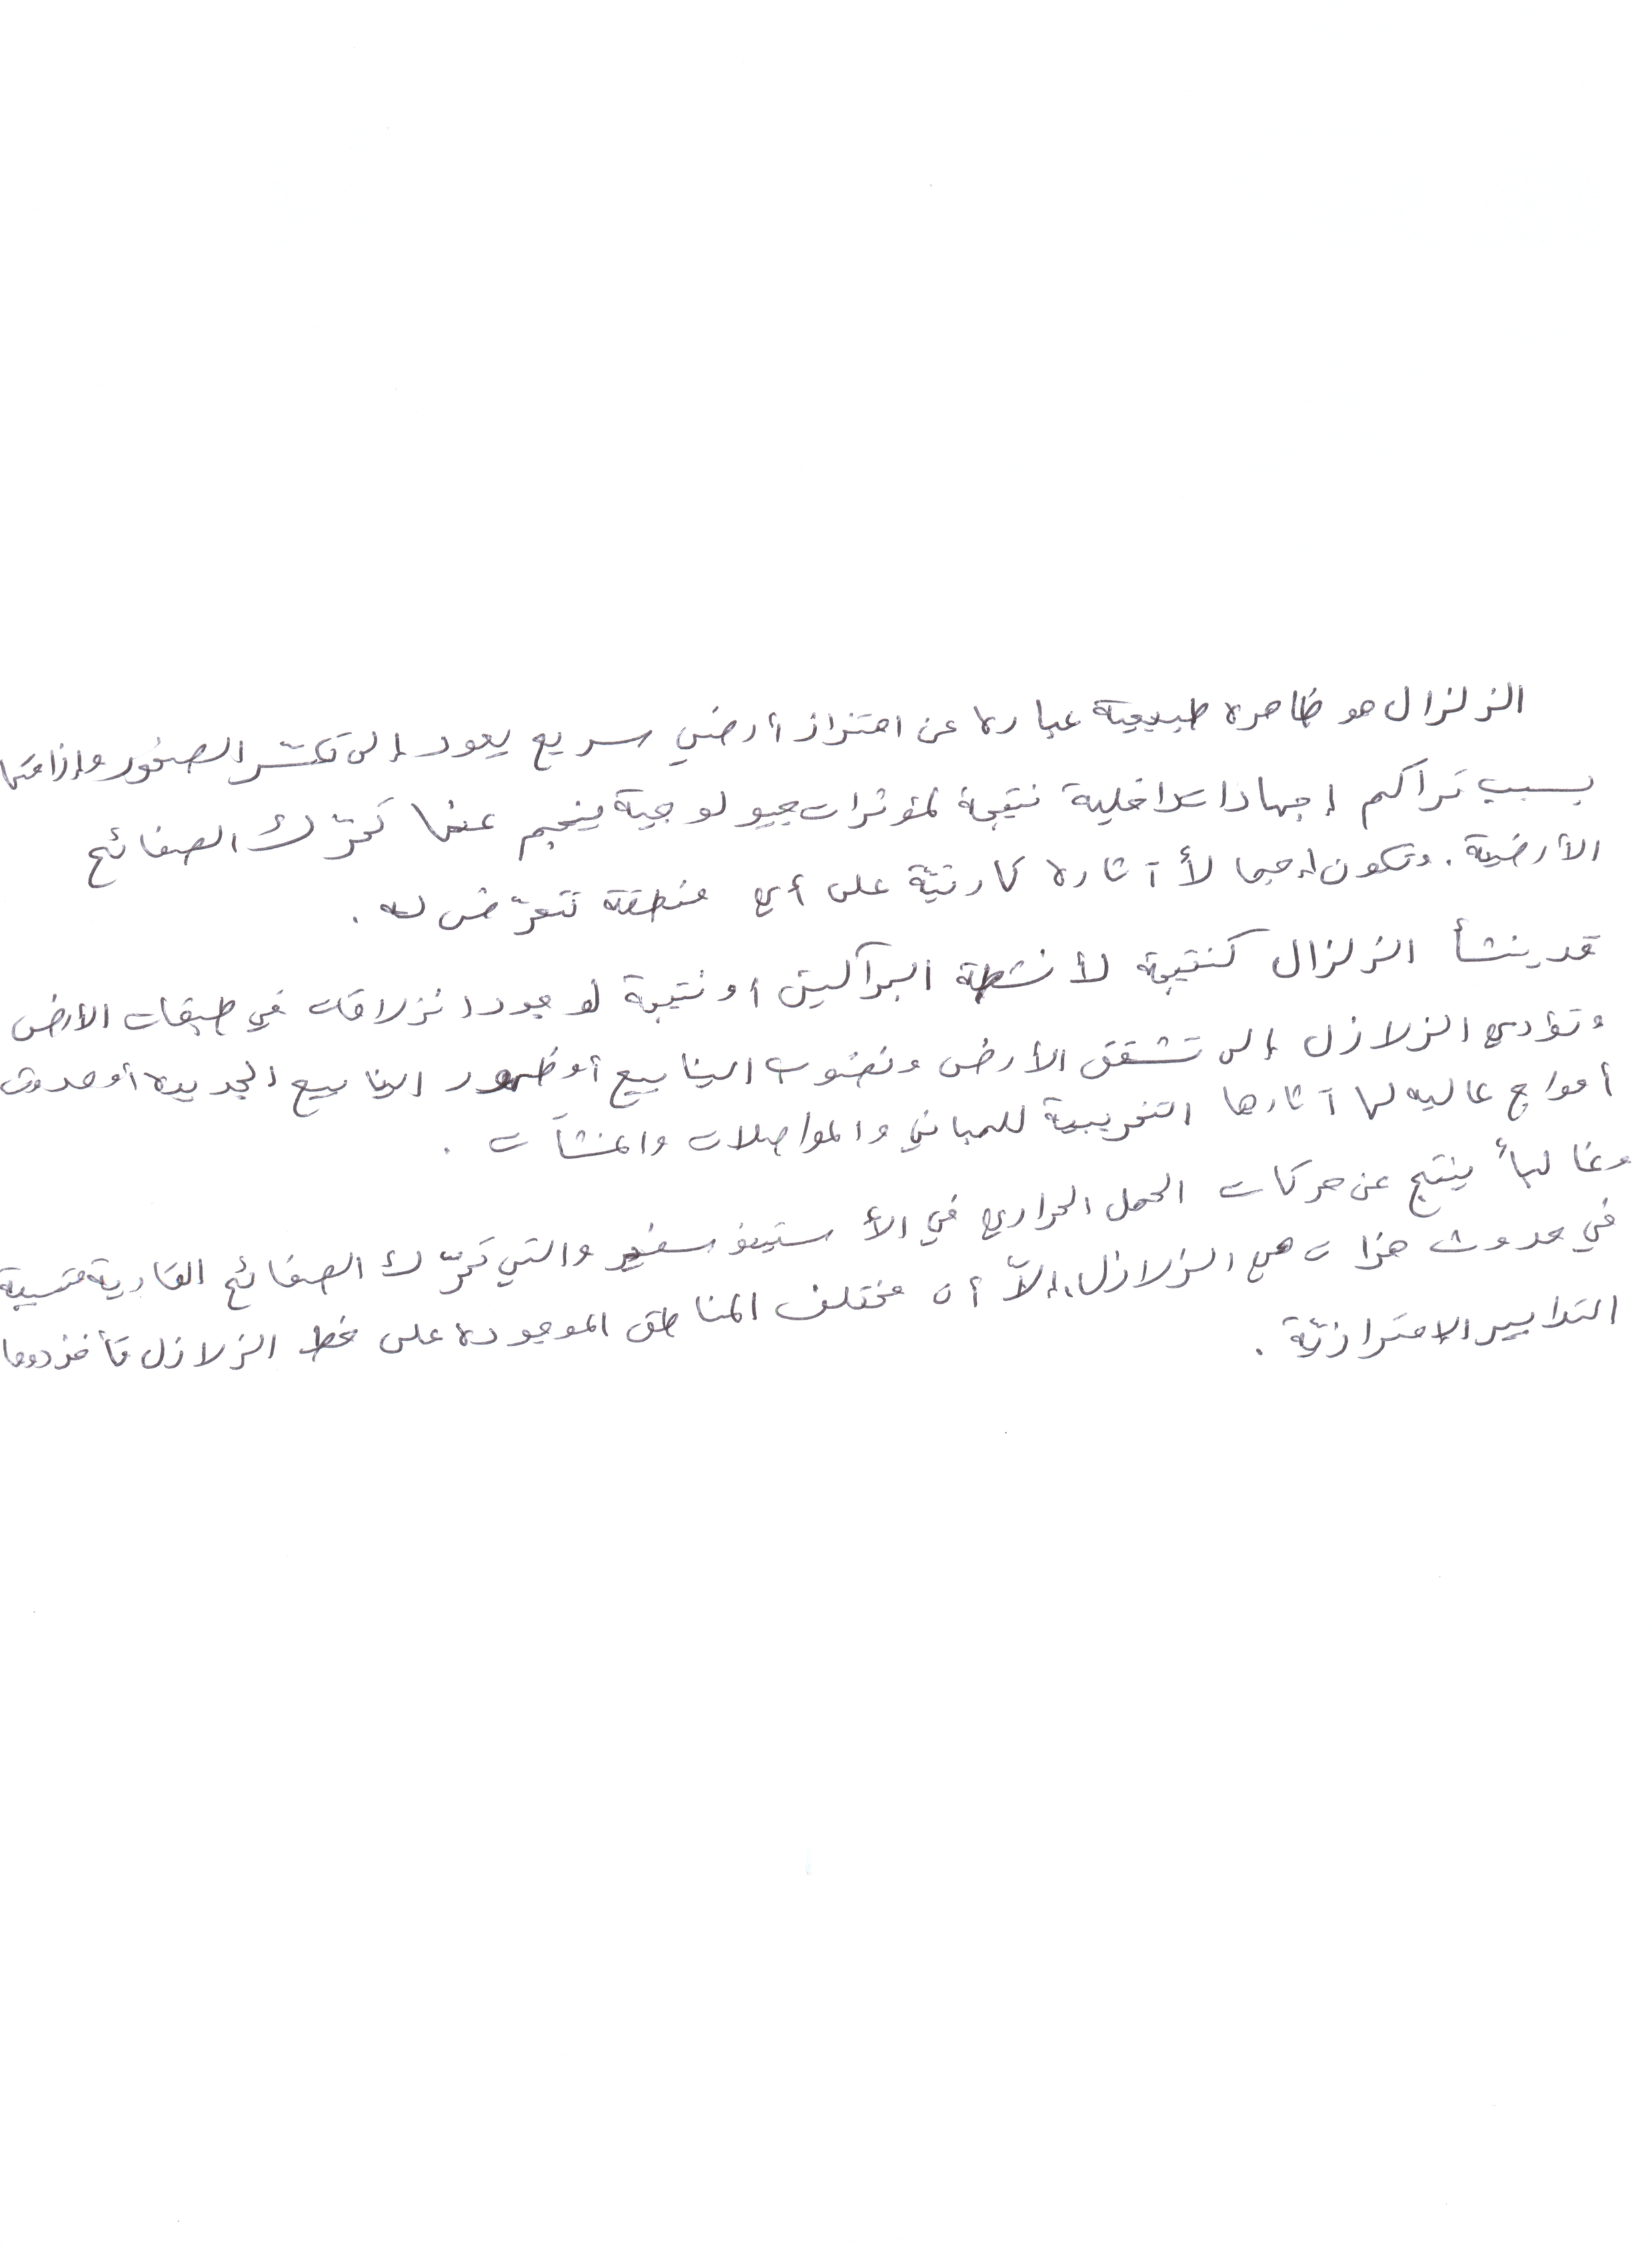 الزلزال هو ظاهرة طبيعية عبارة عن اهتزاز أرضي سريع يعود إلى تكسّر الصخور وإزاحتها
بسبب تراكم إجهادات داخلية نتيجة لمؤثرات جيولوجية ينجم عنها تحرّك الصفائح
الأرضية. وتكون إجمالاً آثاره كارثيّة على أي منطقة تتعرّض له.
قد ينشأ الزلزال كنتيجة لأنشطة البراكين أو نتيجة لوجود انزلاقات في طبقات الأرض
وتؤدي الزلازل إلى تشقق الأرض ونضوب الينابيع أو ظهور الينابيع الجديده أو حدوث
أمواج عاليه لها آثارها التخريبية للمباني والمواصلات والمنشآت.
وغالباً ينتج عن حركات الحمل الحراري في الأستينوسفير والتي تحرّك الصفائح القارية متسببة
في حدوث هزات هي الزلازل، إلاّ أن مختلف المناطق الموجوده على خط الزلازل تأخذ دوما
التدابير الاحترازيّة.